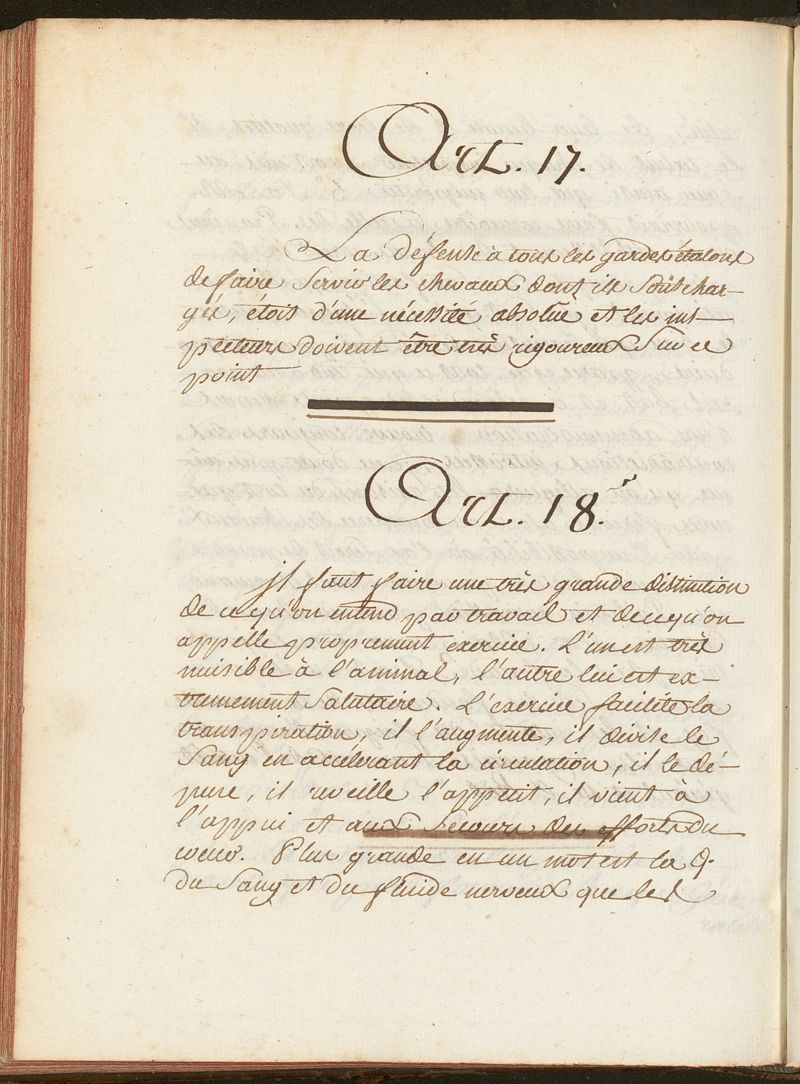 Art. 17.
La défense à tous les gardes étalons
de faire servir les chevaux dont ils sont char-
gés, étoit d'une nécessité absolüe et les ins-
pecteurs doivent être très rigoureux sur ce
point
Art. 18.
Il faut faire une très grande distinction
de ce qu'on entend par travail et de ce qu'on
appelle proprement exercice. L'un est très
nuisible à l'animal, l'autre lui est ex-
trémement salutaire. L'exercice facilite la
transpiration, il l'augmente, il divise le
sang en accélérant la circulation, il le dé-
pure, il reveille l'appetit, il vient à
l'appui et aux secours des efforts du
coeur. Plus grande en un mot est la Q.
du sang et du fluide nerveux que les